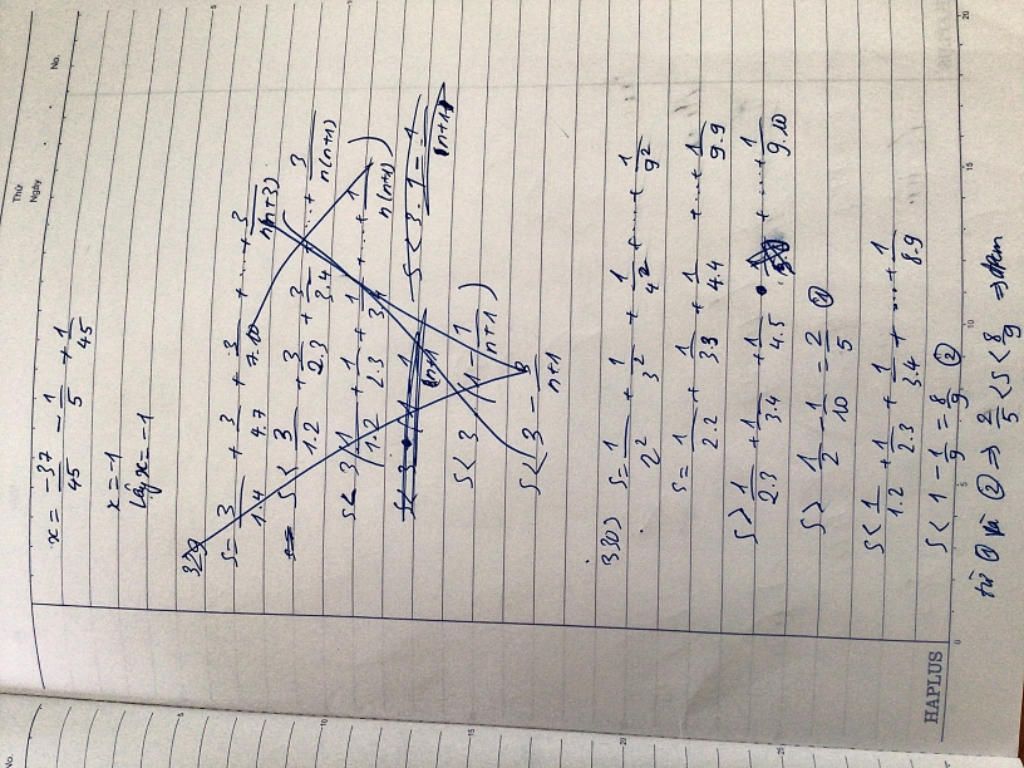 No.
Thứ
Ngày
No.
x = -37/45 - 1/5 + 1/45
x = -1
Vậy x = -1
329
S = 3/1.4 + 3/4.7 + 3/7.10 + ... + 3/n(n+3)
S < 3/1.2 + 3/2.3 + 3/3.4 + ... + 3/n(n+1)
S < 3(1/1.2 + 1/2.3 + 1/3.4 + ... + 1/n(n+1))
S < 3 . 1 - 1/(n+1)
S < 3(1 - 1/n+1)
S < 3 - 3/n+1
330)
S = 1/2² + 1/3² + 1/4² + ... + 1/9²
S = 1/2.2 + 1/3.3 + 1/4.4 + ... + 1/9.9
S > 1/2.3 + 1/3.4 + 1/4.5 + ... + 1/9.10
S > 1/2 - 1/10 = 2/5 ①
S < 1/1.2 + 1/2.3 + 1/3.4 + ... + 1/8.9
S < 1 - 1/9 = 8/9 ②
từ ① và ② => 2/5 < S < 8/9 => đpcm
HAPLUS